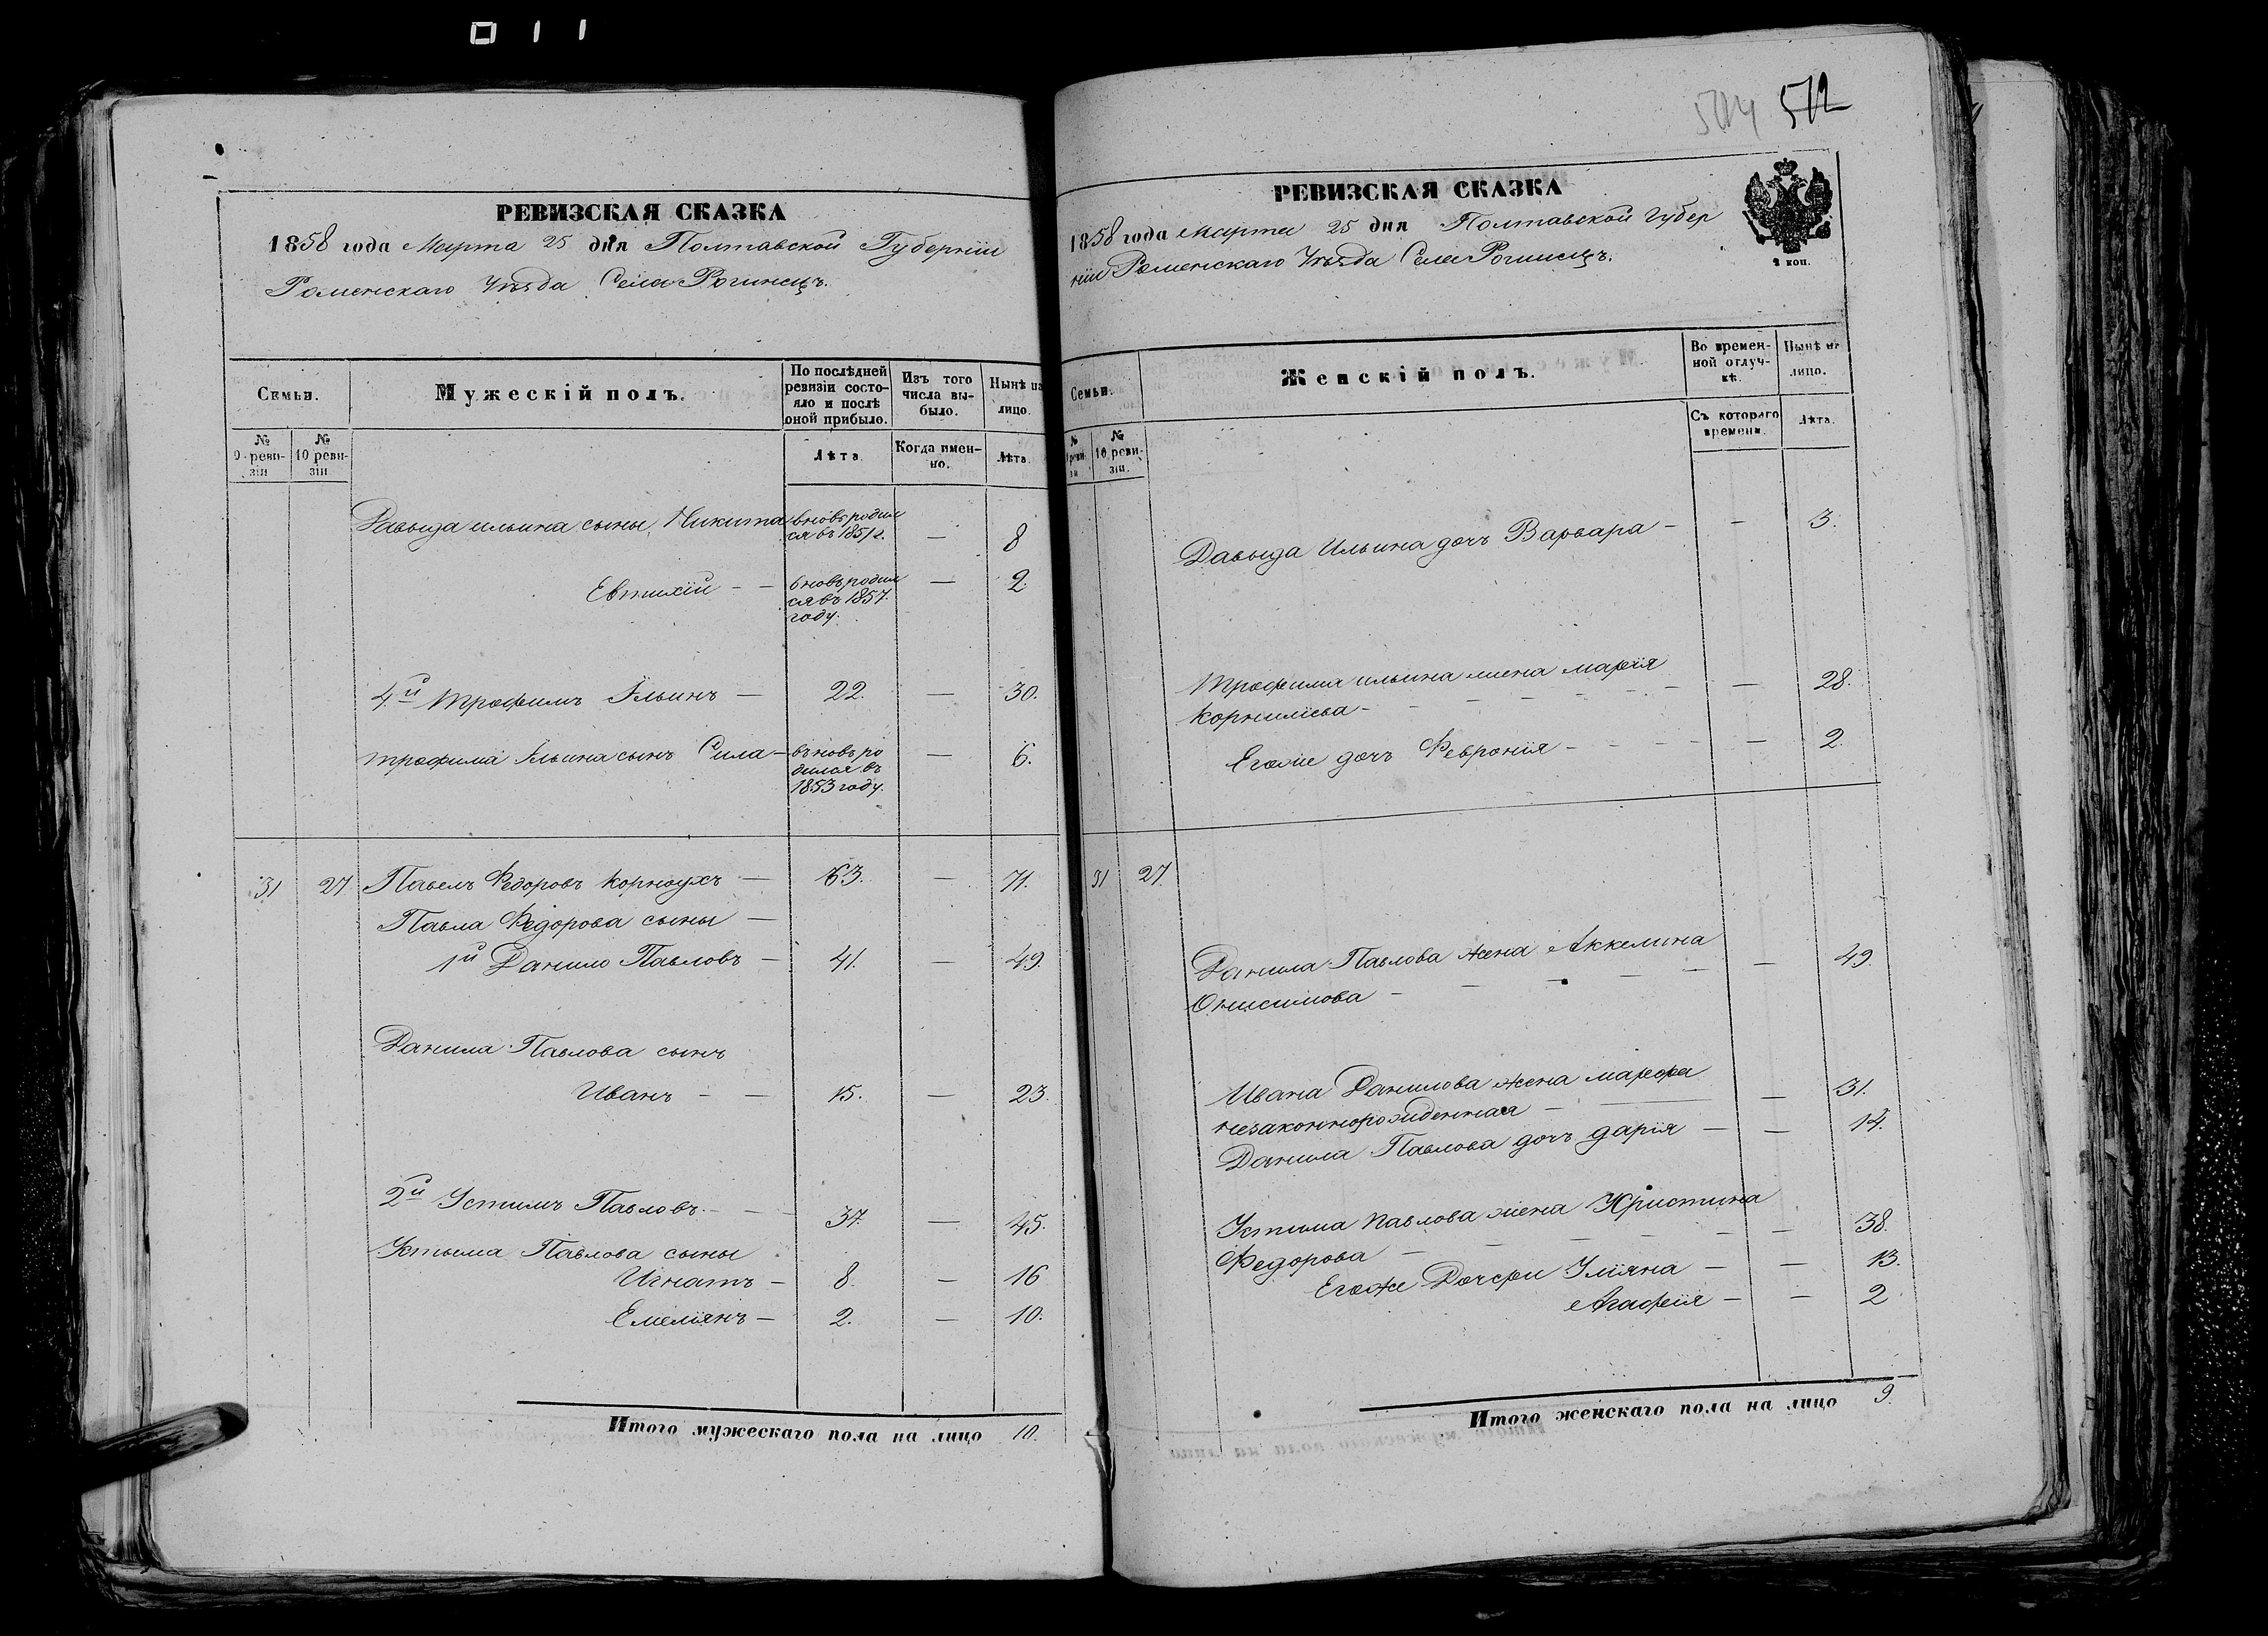 011
РЕВИЗСКАЯ СКАЗКА
1858 года Марта 25 дня Полтавской Губерніи
Роменскаго Уѣзда Села Рогинецъ.
Семьи.
Мужескій полъ.
По послѣдней ревизіи состояло и послѣ оной прибыло.
Изъ того числа выбыло.
Нынѣ на лицо.
№ 9 ревизіи
№ 10 ревизіи.
Лѣта
Когда именно.
Лѣта.
Давыда ильина сыны Никита вновь родился въ 1851 г. — 8
Евтихій — — вновь родился въ 1857 году. — 2.
4й Трофимъ Ильинъ — 22. — 30.
Трофима Ильина сынъ Сила — вновь родился въ 1853 году. — 6.
31 27 Павелъ Федоровъ Корноухъ — 63. — 71.
Павла Федорова сыны —
1й Данило Павловъ — 41. — 49.
Данила Павлова сынъ
Иванъ — — 15. — 23.
2й Устимъ Павловъ. — — 37. — 45.
Устыма Павлова сыны
Игнатъ — 8. — 16
Емеліянъ — 2. — 10.
Итого мужескаго пола на лицо 10.
504 512
РЕВИЗСКАЯ СКАЗКА
1858 года Марта 25 дня Полтавской Губер
ніи Роменскаго Уѣзда Села Рогинецъ.
2 коп.
Семьи.
Женскій полъ.
Во временной отлучкѣ.
Нынѣ на лицо.
№ 9 ревизіи
№ 10 ревизіи.
Съ котораго времени.
Лѣта.
Давыда Ильина дочъ Варвара — — 3.
Трофима ильина жена марія
Корниліева — — 28.
Егоже дочъ Февронія — — 2.
31 27
Данила Павлова жена Аккелина
Онисимова — — 49.
Ивана Данилова жена марфа
незаконнорожденная — — 31.
Данила Павлова дочъ дарія — — 14.
Устима павлова жена Христина
Федорова — — 38.
Егоже Дочери Уліяна — — 13.
Агафія — — 2
Итого женскаго пола на лицо 9.